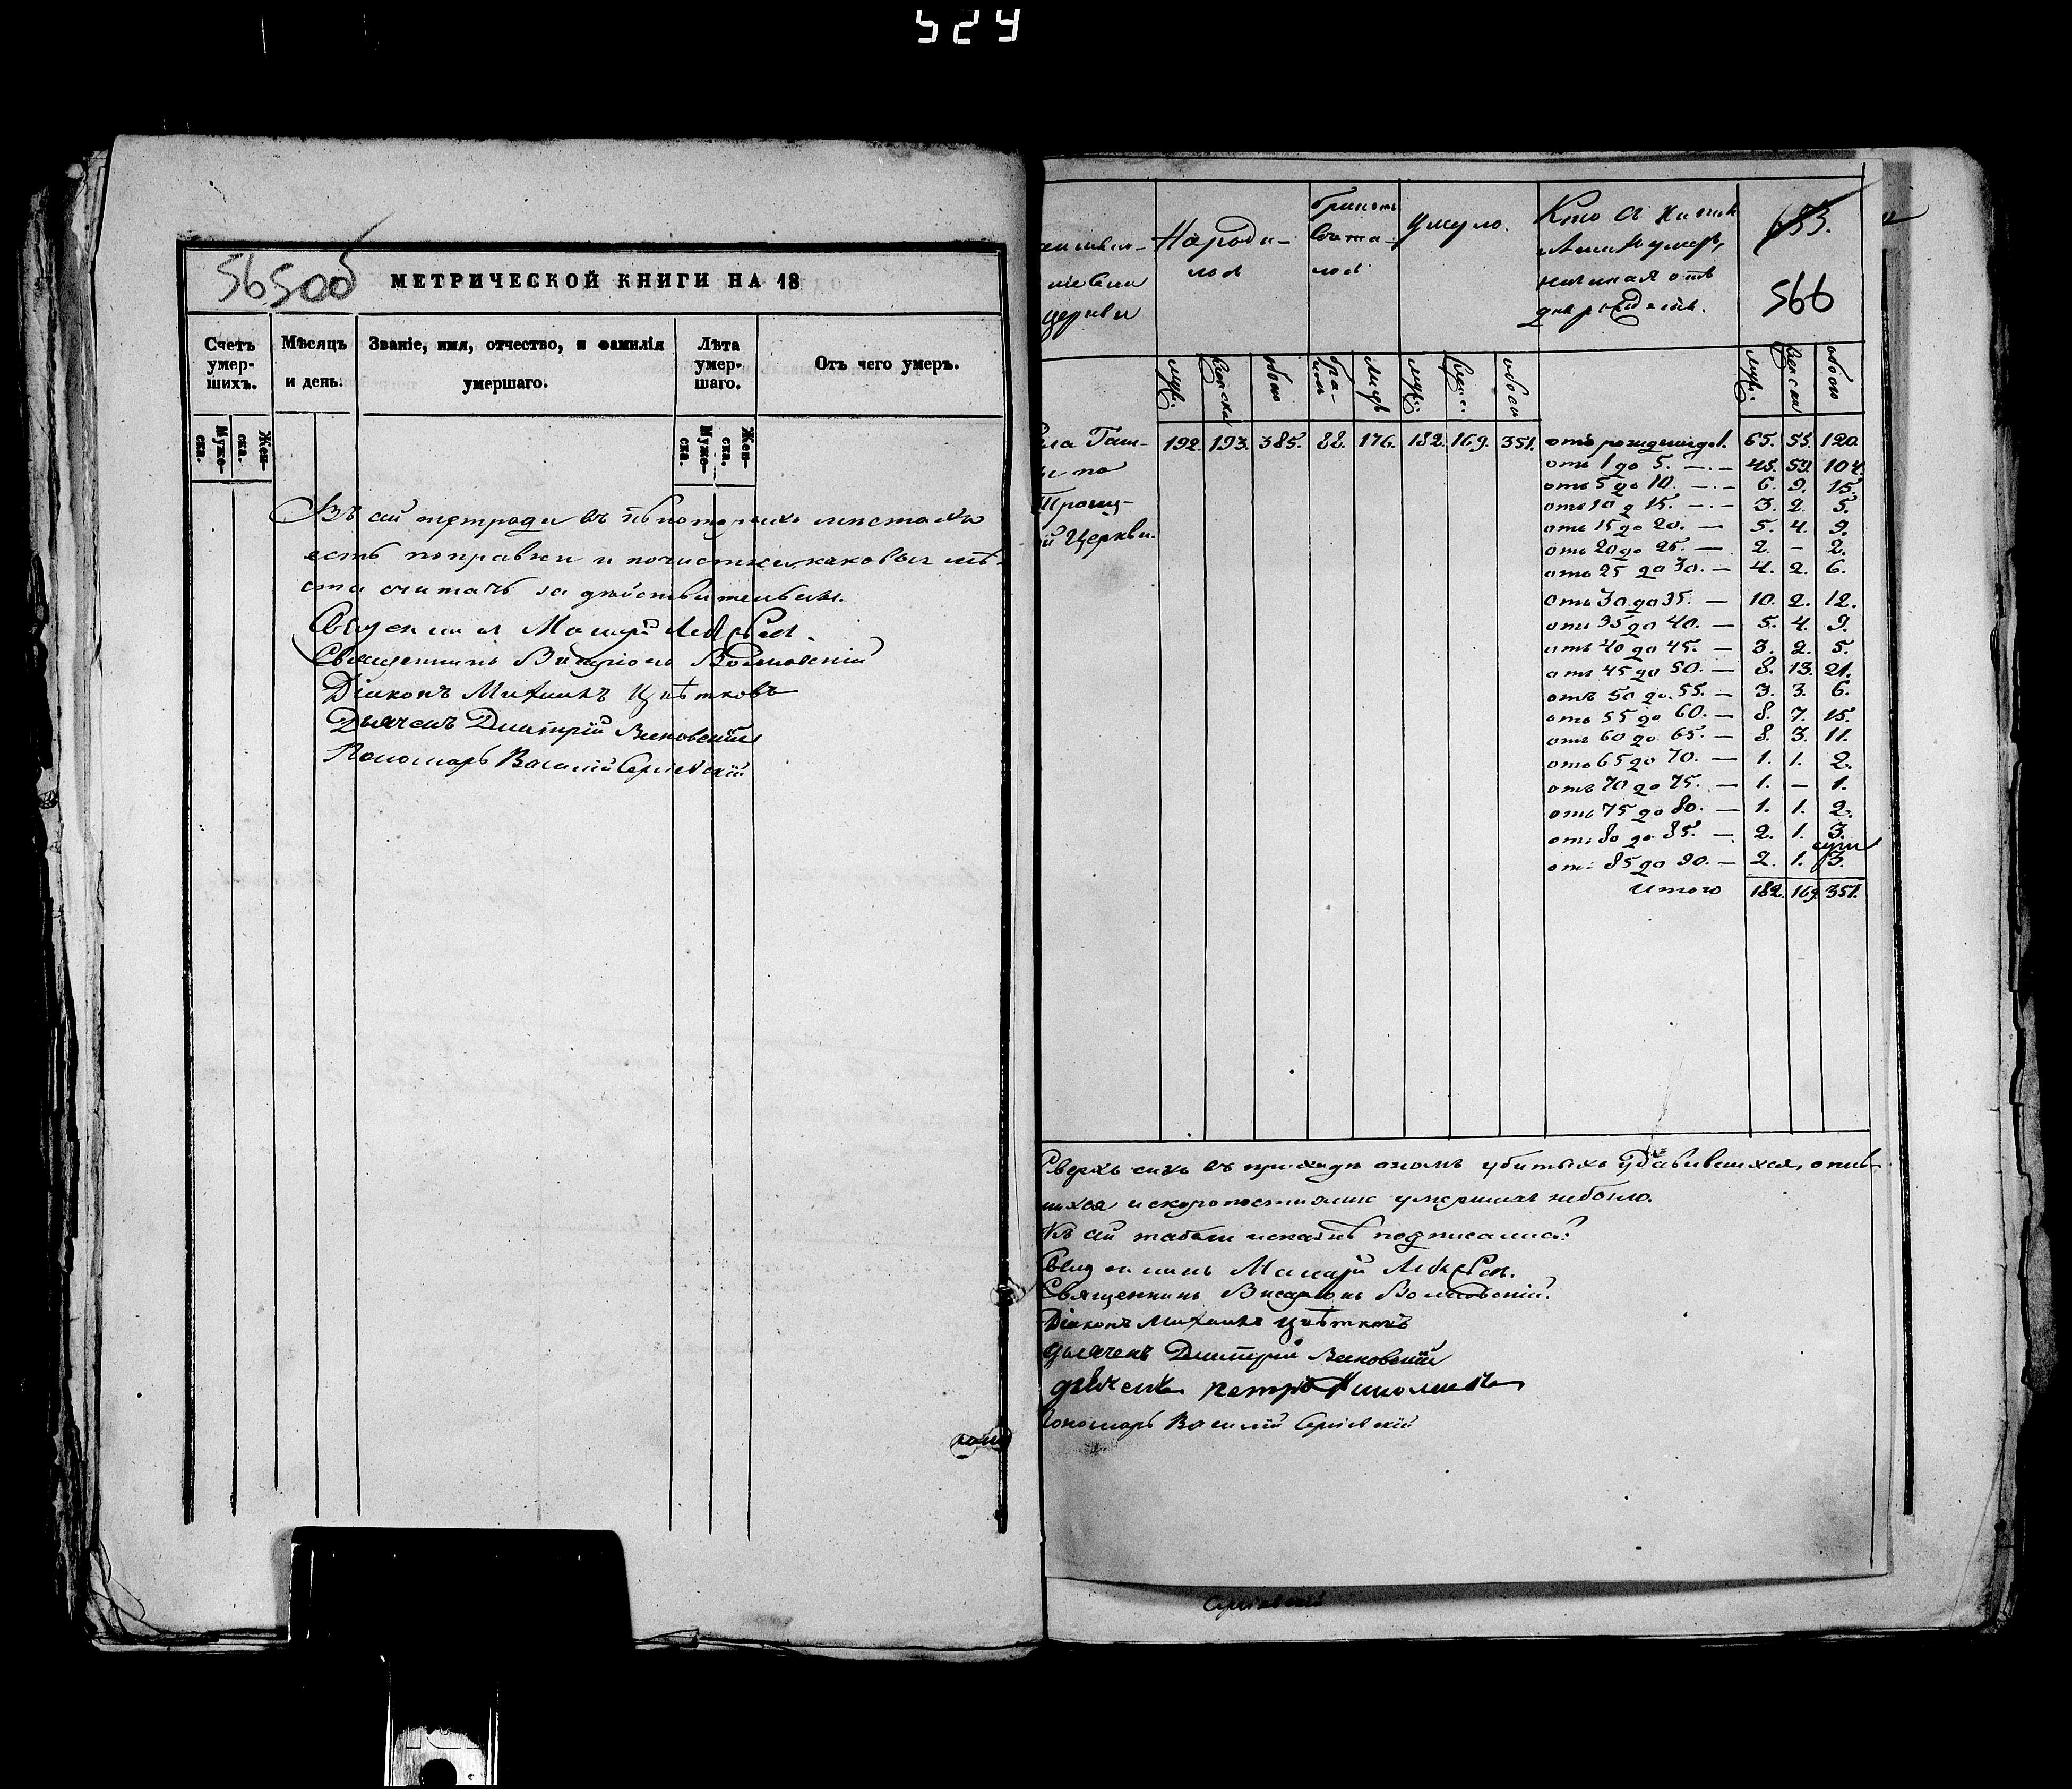 524
565об
МЕТРИЧЕСКОЙ КНИГИ НА 18
Счетъ умер-шихъ.
Мѣсяцъ и день.
Званіе, имя, отчество, и фамилія умершаго.
Лѣта умер-шаго.
Отъ чего умеръ.
Муже-ска.
Жен-ска.
Муже-ска.
Жен-ска.
Въ сей тетради въ нѣкоторыхъ листахъ
есть поправки и почистки, каковыя мѣ-
ста считать за дѣйствительныя.
Священникъ
Священникъ Висаріонъ
Діаконъ Михаилъ Цвѣтковъ
Дьячекъ Дмитрій
Пономарь Василій Сергіевскій
церкви
Народи-
лось
Бракомъ
соче-та-
лось
Умерло.
Кто съ какихъ
лѣтъ умеръ,
начиная отъ
дня рожденія.
653.
566
муж. женска обоего бра-ковъ лицъ муж. женс. обоего муж. женска обоего
села Таш-
ы по
Троиц-
ой Церкви.
192. 193. 385. 88. 176. 182. 169. 351.
отъ рожденія до 1. 65. 55. 120.
отъ 1 до 5. — 45. 59. 104.
отъ 5 до 10. — 6. 9. 15.
отъ 10 д 15. — 3. 2. 5.
отъ 15 до 20. — 5. 4. 9.
отъ 20 до 25. — 2. – 2.
отъ 25 до 30. — 4. 2. 6.
отъ 30 до 35. — 10. 2. 12.
отъ 35 до 40. — 5. 4. 9.
отъ 40 до 45. — 3. 2. 5.
отъ 45 до 50. — 8. 13. 21.
отъ 50 до 55. — 3. 3. 6.
отъ 55 до 60. — 8. 7. 15.
отъ 60 до 65. — 8. 3. 11.
отъ 65 до 70. — 1. 1. 2.
отъ 70 до 75. — 1. – 1.
отъ 75 до 80. — 1. 1. 2.
отъ 80 до 85. — 2. 1. 3.
отъ 85 до 90. — 2. 1. 3.
Итого 182. 169. 351.
Сверхъ сихъ въ приходѣ ономъ убитыхъ удавившихся, опив-
шихся и скоропостижно умершихъ небыло.
Къ сей табели подписались:
Священникъ
Священникъ Висаріонъ
Діаконъ Михаилъ Цвѣтковъ
Дьячекъ Дмитрій
дьячекъ петръ Николаевъ
Пономарь Василій Сергіевскій
Сергіевскій